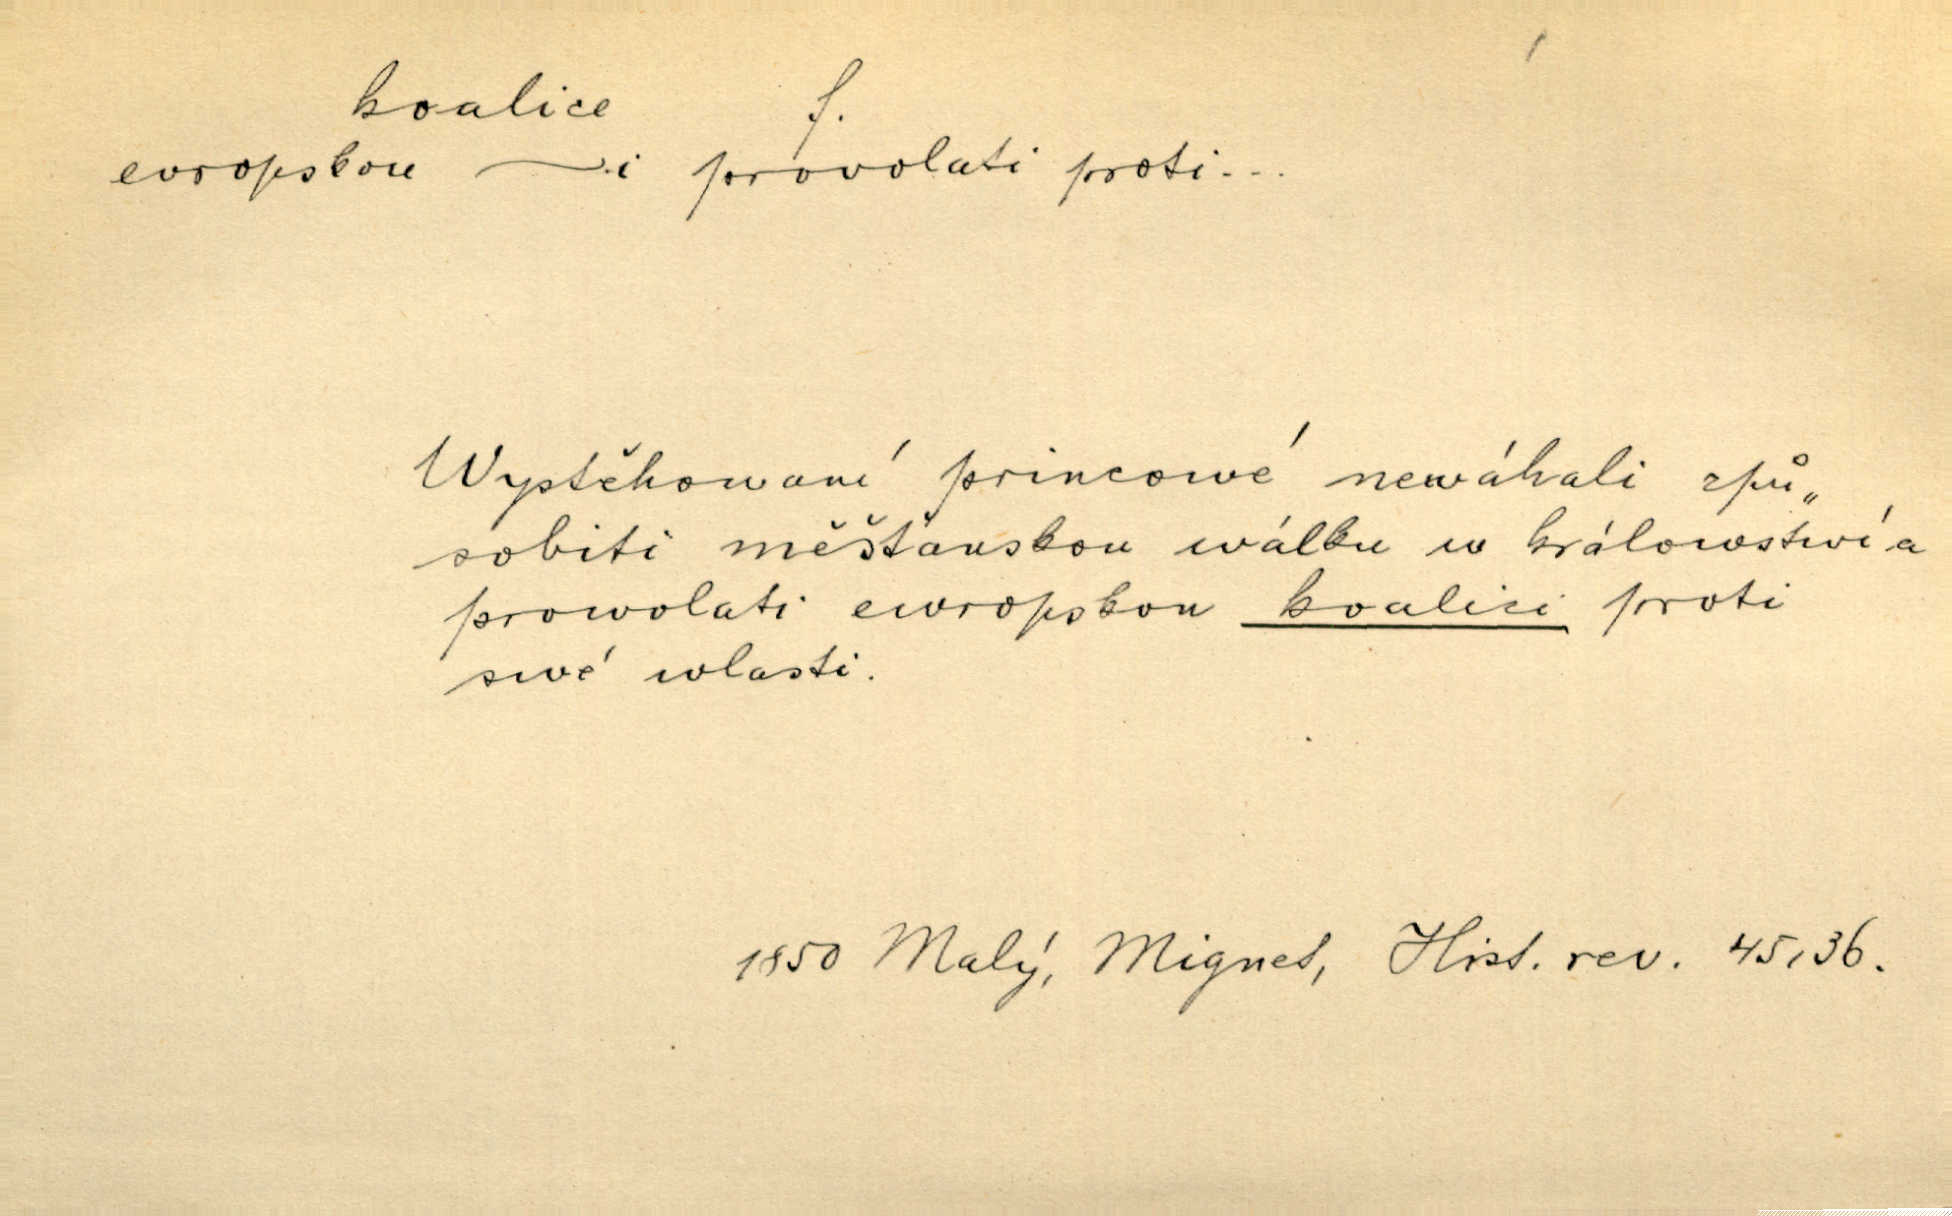 koalice f.
evropskou ~i provolati proti...
Wystěhowaní princowé newáhali způ„
sobiti měšťanskou wálku w králowstwí a
prowolati ewropskou koalici proti
swé wlasti.
1850 Malý, Mignet, Hist. rev. 45,36.